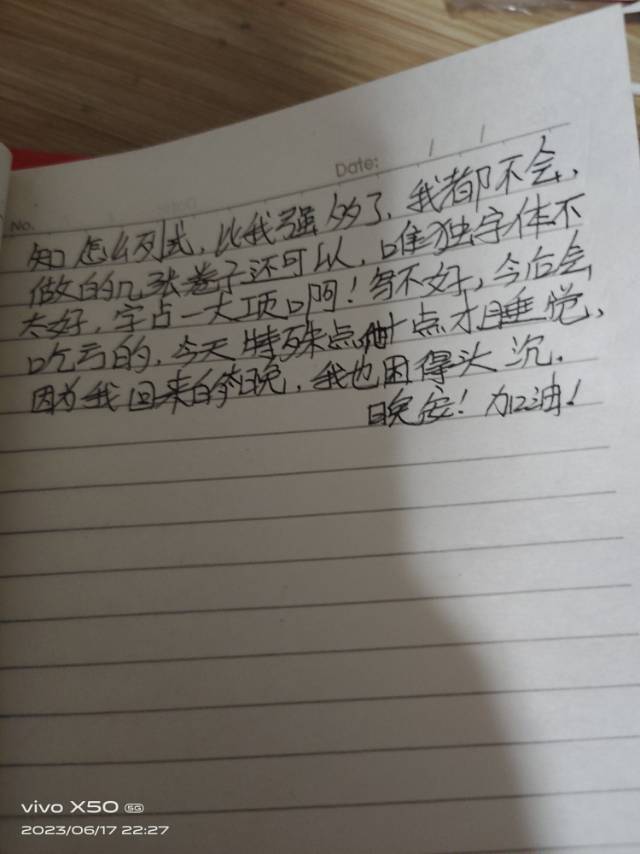 Date: / /
No.
知怎么列式,比我强多了,我都不会,
做的几张卷子还可以,唯独字体不
太好,字占一大项啊!写不好,今后会
吃亏的,今天特殊点,十点才睡觉,
因为我回来的有点晚,我也困得头沉.
晚安!加油!
vivo X50 5G
2023/06/17 22:27